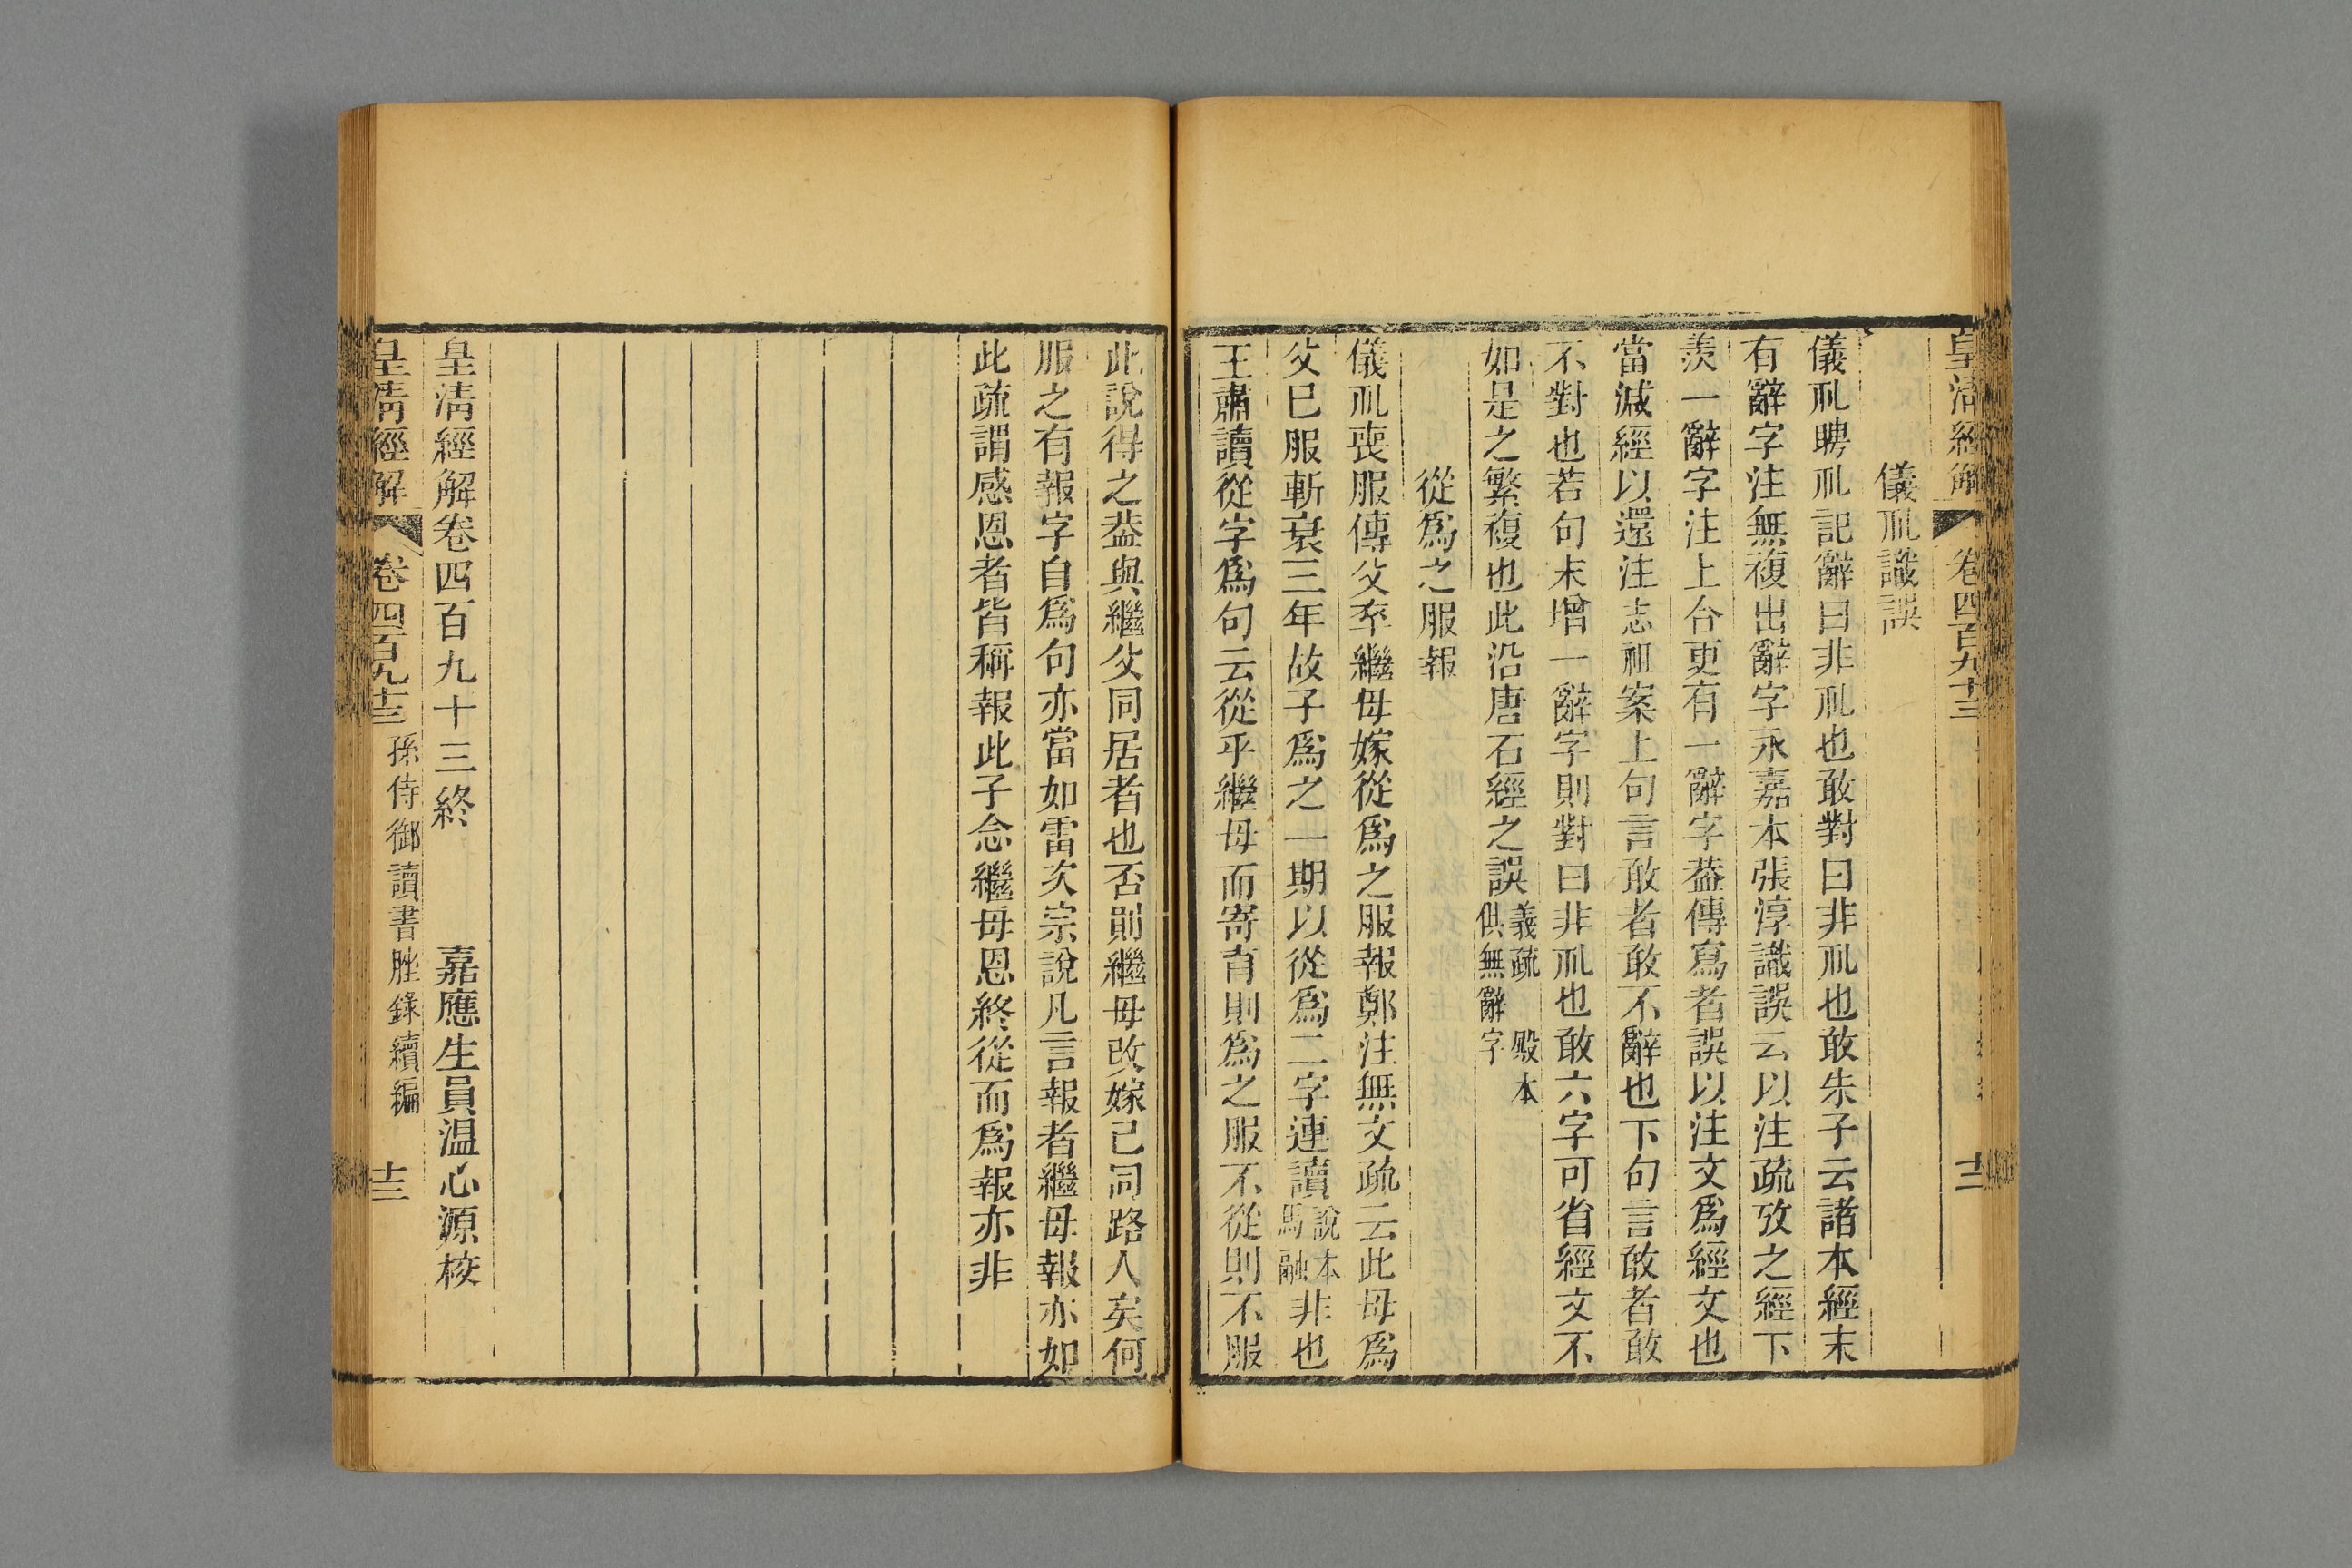 皇清經解 卷四百九十三 十二
儀禮識誤
儀礼聘礼記辭曰非礼也敢對曰非礼也敢朱子云諸本經末
有辭字注無複出辭字永嘉本張淳識誤云以注疏攷之經下
羨一辭字注上合更有一辭字葢傳寫者誤以注文爲經文也
當減經以還注志祖案上句言敢者敢不辭也下句言敢者敢
不對也若句末增一辭字則對曰非礼也敢六字可省經文不
如是之繁複也此沿唐石經之誤義疏 殿本供無辭字
從爲之服報
儀礼喪服傳父卒繼母嫁從爲之服報鄭注無文疏云此母爲
父巳服斬衰三年故子爲之一期以從爲二字連讀說本馬融非也
王肅讀從字爲句云從乎繼母而寄育則爲之服不從則不服
此說得之葢與繼父同居者也否則繼母改嫁已同路人矣何
服之有報字自爲句亦當如雷次宗說凡言報者繼母報亦如
此疏謂感恩者皆稱報此子念繼母恩終從而爲報亦非
皇清經解卷四百九十三終 嘉應生員温心源校
皇清經解 卷四百九十三 孫侍御讀書脞錄續編 十三